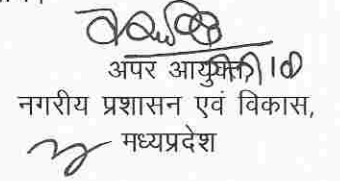 अपर आयुक्त
नगरीय प्रशासन एवं विकास,
मध्यप्रदेश